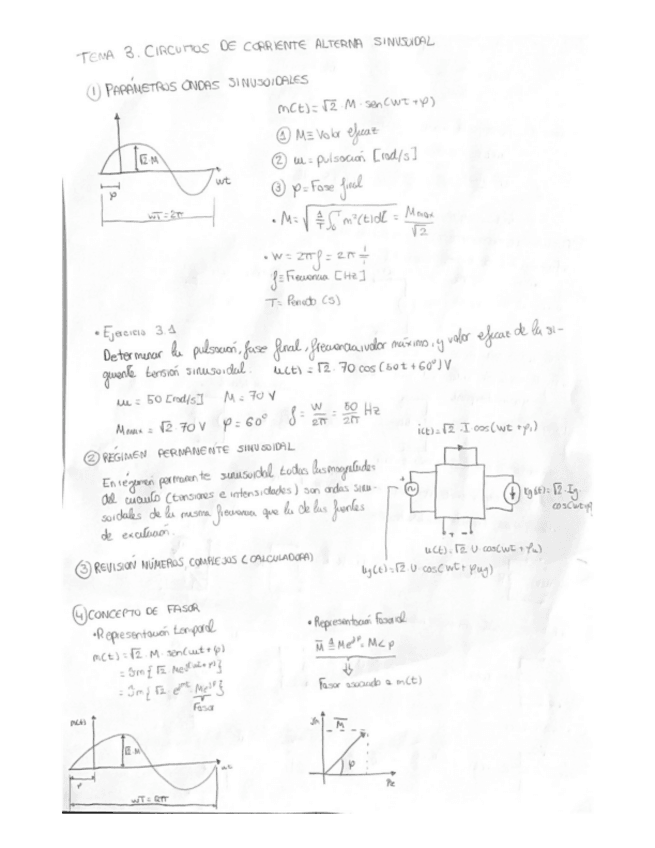 TEMA 3. CIRCUITOS DE CORRIENTE ALTERNA SINUSOIDAL
① PARÁMETROS ONDAS SINUSOIDALES
m(t) = √2 · M · sen(wt + φ)
① M ≡ Valor eficaz
√2·M
② w = pulsación [rad/s]
wt
③ φ = Fase final
φ
wT = 2π
• M = √(1/T ∫₀ᵀ m²(t)dt) = Mmax/√2
• W = 2πf = 2π 1/T
f = Frecuencia [Hz]
T = Periodo (s)
• Ejercicio 3.1
Determinar la pulsación, fase final, frecuencia, valor máximo, y valor eficaz de la si-
guiente tensión sinusoidal. u(t) = √2 · 70 cos(50t + 60°) V
w = 50 [rad/s] M = 70 V
Mmax = √2 · 70 V φ = 60° f = W/2π = 50/2π Hz
i(t) = √2 · I cos(wt + φi)
② RÉGIMEN PERMANENTE SINUSOIDAL
En régimen permanente sinusoidal todas las magnitudes
del circuito (tensiones e intensidades) son ondas sinu-
soidales de la misma frecuencia que la de las fuentes
de excitación.
Ig(t) = √2 · Ig
cos(wt+φ
+ -
u(t) = √2 U cos(wt + φu)
ug(t) = √2 U cos(wt + φug)
③ REVISIÓN NÚMEROS COMPLEJOS (CALCULADORA)
④ CONCEPTO DE FASOR
• Representación temporal
m(t) = √2 · M · sen(wt + φ)
= Im{√2 · Me^j(wt+φ)}
= Im{√2 · e^jwt · Me^jφ}
Fasor
• Representación Fasorial
M ≜ Me^jφ = M<φ
Fasor asociado a m(t)
m(t)
√2·M
wt
φ
wT = 2π
Im
M
φ
Re